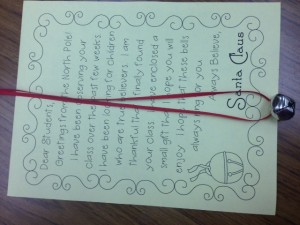 Dear Students,
Greetings from the North Pole!
I have been observing your
class over the last few weeks.
I have been looking for children
who are true believers. I am
thankful that I finally found
your class. I have enclosed a
small gift that I hope you will
enjoy. I hope that these bells
always ring for you.
Always Believe,
Santa Claus